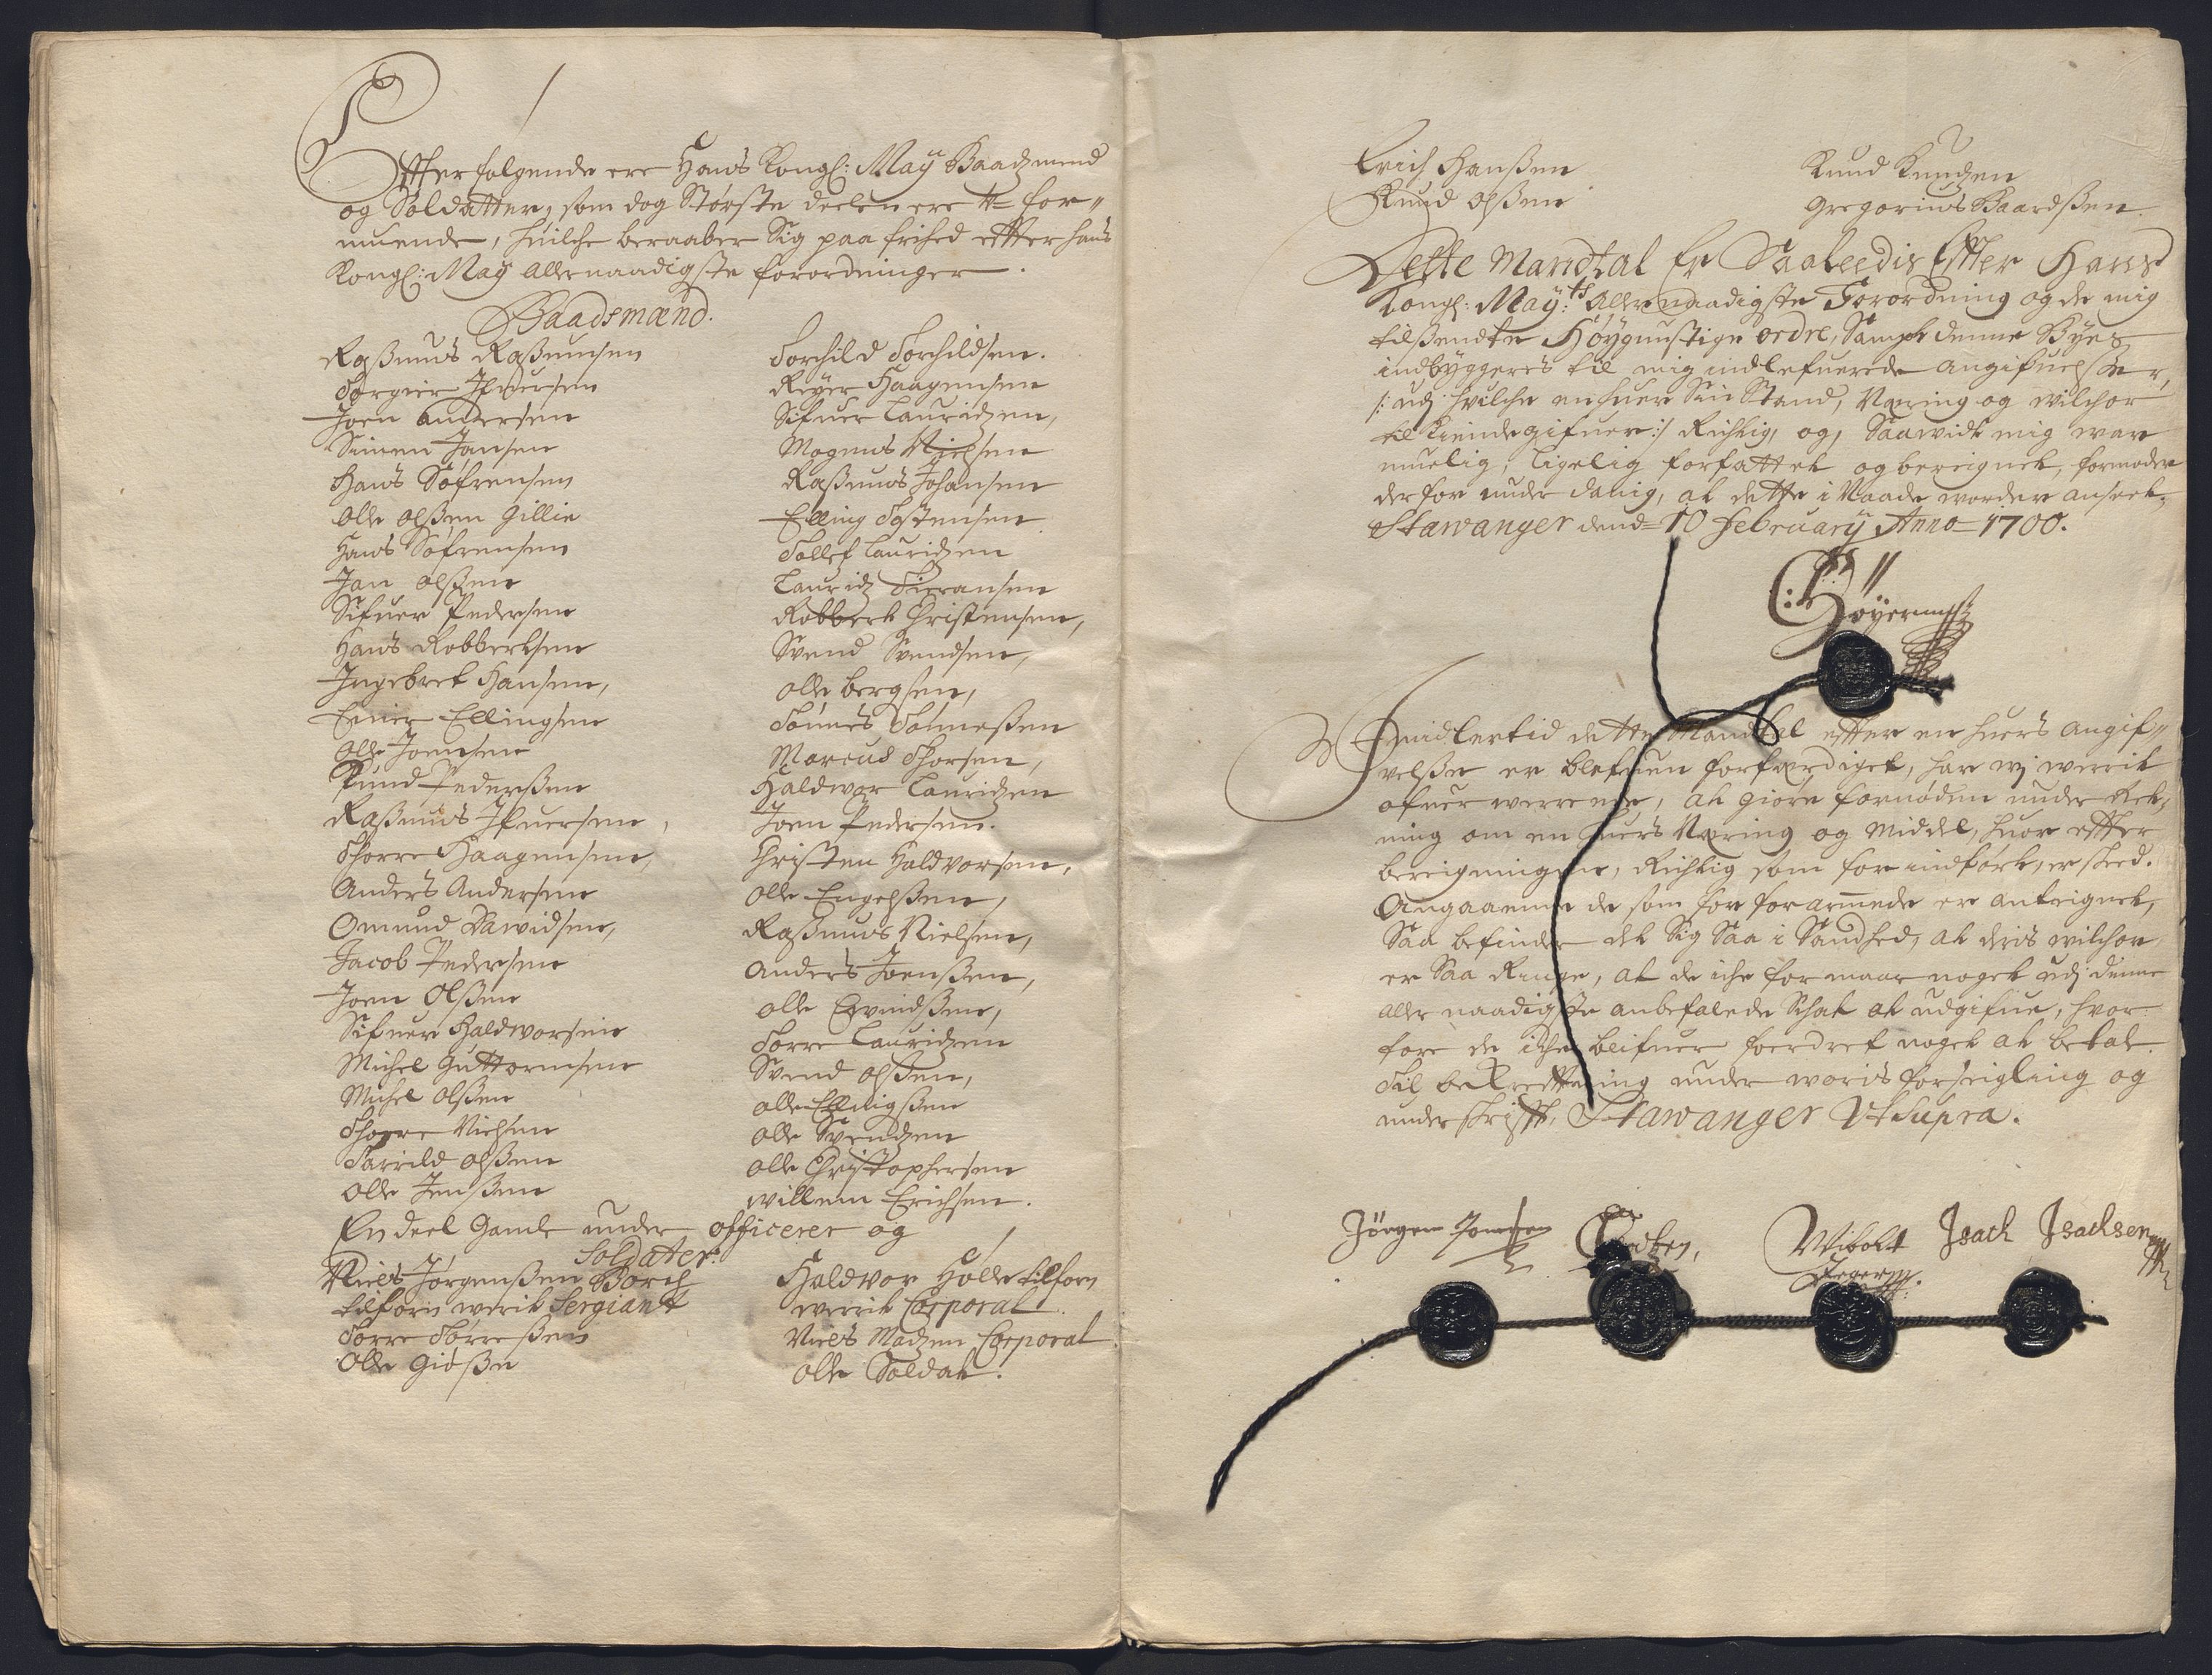 Efterfølgende ere Hans Kongl: Maÿ Baadzmend
og Soldatter, som dog Største deelen ere U=for„
muende, huilche beraaber Sig paa frihed effter hans
Kongl: Maÿ allernaadigste forordninger.
Baadsmænd.
Raßmus Raßmusen
Torgier Ifuersen
Joen Andersen
Simen Jansen
Hans Søfrensen
Olle Olßen Gillie
Hans Søfrensen
Jan Olßen
Sifuer Pedersen
Hans Robbertsen
Ingebret Hansen,
Einer Ellingsen
Olle Joensen
Knud Pederßen
Raßmus Ifuersen,
Thorre Haagensen,
Anders Andersen
Omund Dawidsen,
Jacob Pedersen
Joen Olßen
Sifuer Haldworsen
Michel Guttormsen
Michel Olßen
Thorre Nielsen
Tarield Olßen
Olle Jenßen
Torchild Torchildsen.
Reÿer Haagensen
Sifuer Lauridzen,
Mogens Nielsen
Raßmus Johansen
Elling Tostensen
Tollef Lauridzen
Lauridz Sieransen
Robbert Christensen,
Svend Svendsen,
Olle bergsen,
Tønnes Tønneßen
Marcus Thorsen,
Haldwor Lauridzen
Joen Pedersen.
Christen Haldvorsen,
Olle Engelßen,
Raßmus Nielsen,
Anders Joenßen,
Olle Evindßen,
Torre Lauridzen
Svend Olßen,
Olle Ellingßen
Olle Svendzen
Olle Christophersen
Willem Erichsen.
En deel Gamle under officerer og
Soldater.
Niels Jørgenßen Borch
tilforn werit Sergiant
Torre Torreßen
Olle Gioßen
Haldvor Holle tilforn
werrit Corporal.
Niels Madzen Corporal
Olle Soldat.
Erich Hanßen
Knud Olßen
Knud Knudzen
Gregorius Baardßen.
Dette Mandtal Er Saaleedis Effter Hans
Kongl: Maÿ:ts Allernaadigste Forordning og de mig
tilsendte Høygunstige ordre, Sampt denne Byes
indbyggeres til mig indlefuerede angifuelßer,
/: udj huilche en huer Sin Stand, Næring og wilchor
til kiende gifuer:/ Richtig, og, Saawidt mig war
muelig, ligelig forfattet og bereignet, formoder
derfor under danig, at dette i Naade worder anseet.
Stawanger dend= 10 februarÿ Anno= 1700.
Imidlertid dette Mandtal effter en huers angif„
velßer er blefuen forfærdiget, har wj werrit
ofuer werrende, at giøre fornøden under ret„
ning om en huers Næring og Middel, huor effter
bereigningen, Richtig som for indført, er skeed.
Angaaende de som for forarmede er anteignet,
Saa befindes det Sig Saa i Sandhed, at deris wilchor
er Saa Ringe, at de iche formaar noget udj denne
aller naadigste anbefalede Schat at udgifue, hvor
fore de iche blifuer fordret noget at betale.
Til bekreftning under woris forseigling og
underskrifft, Stawanger Ut Supra.
Jörgen Jonsen
Wibolt
Jegersz.
Isach Isachsen